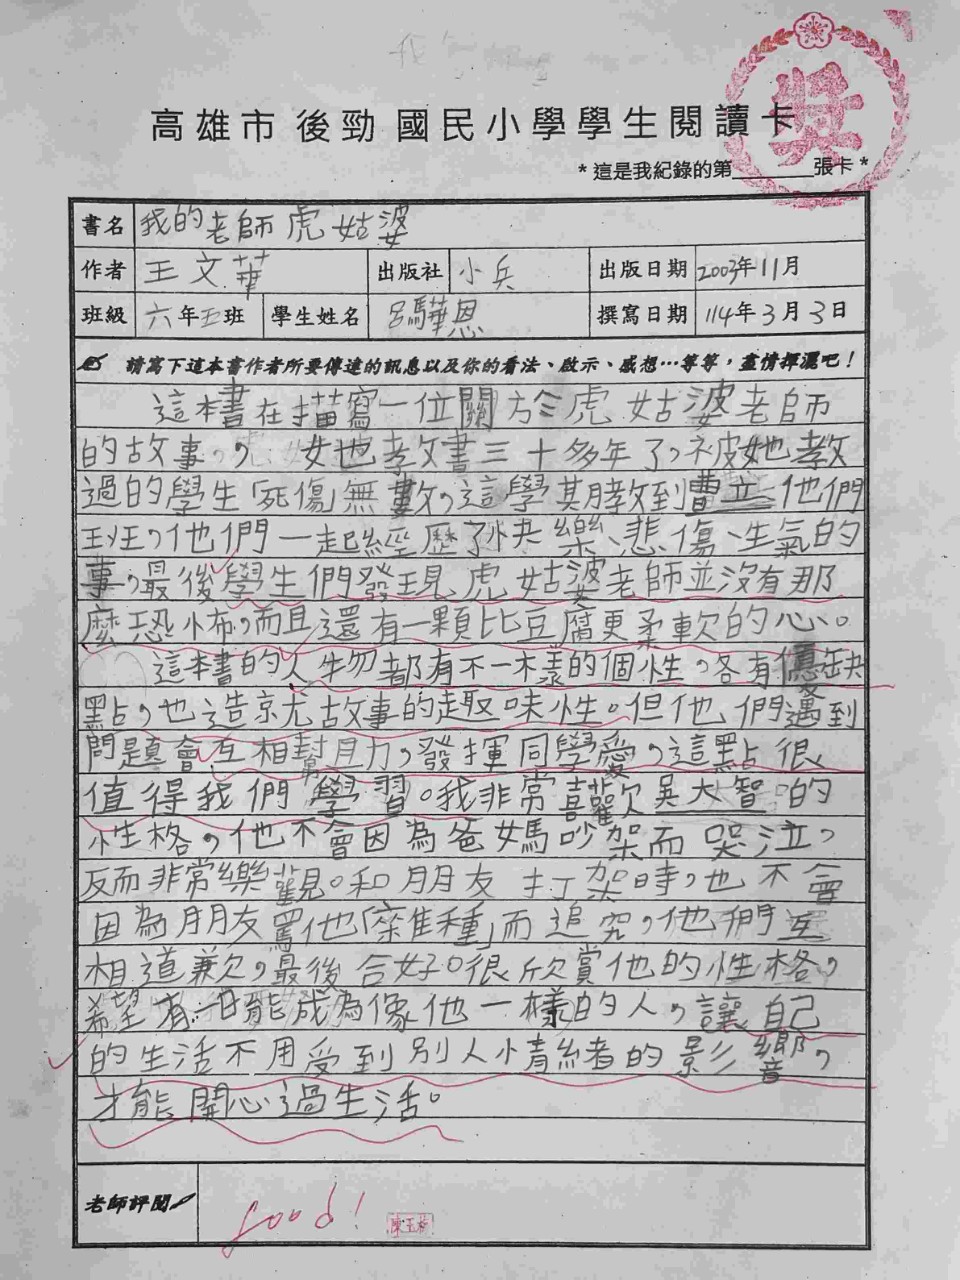 獎
高雄市 後勁 國民小學學生閱讀卡
*這是我紀錄的第______張卡*
書名 我的老師虎姑婆
作者 王文華 出版社 小兵 出版日期 2003年11月
班級 六年五班 學生姓名 呂驊恩 撰寫日期 114年3月3日
請寫下這本書作者所要傳達的訊息以及你的看法、啟示、感想…等等，盡情揮灑吧！
這本書在描寫一位關於虎姑婆老師
的故事，她教書三十多年了，被她教
過的學生「死傷」無數，這學期教到曹立他們
班，他們一起經歷了快樂、悲傷、生氣的
事，最後學生們發現虎姑婆老師並沒有那
麼恐怖，而且還有一顆比豆腐更柔軟的心。
這本書的人物都有不一樣的個性，各有優缺
點，也造就故事的趣味性。但他們遇到
問題會互相幫助，發揮同學愛，這點很
值得我們學習。我非常喜歡吳大智的
性格，他不會因為爸媽吵架而哭泣，
反而非常樂觀。和朋友打架時，也不會
因為朋友罵他「雜種」而追究，他們互
相道歉，最後合好。很欣賞他的性格，
希望有一日能成為像他一樣的人，讓自己
的生活不用受到別人情緒的影響，
才能開心過生活。
老師評閱 good!